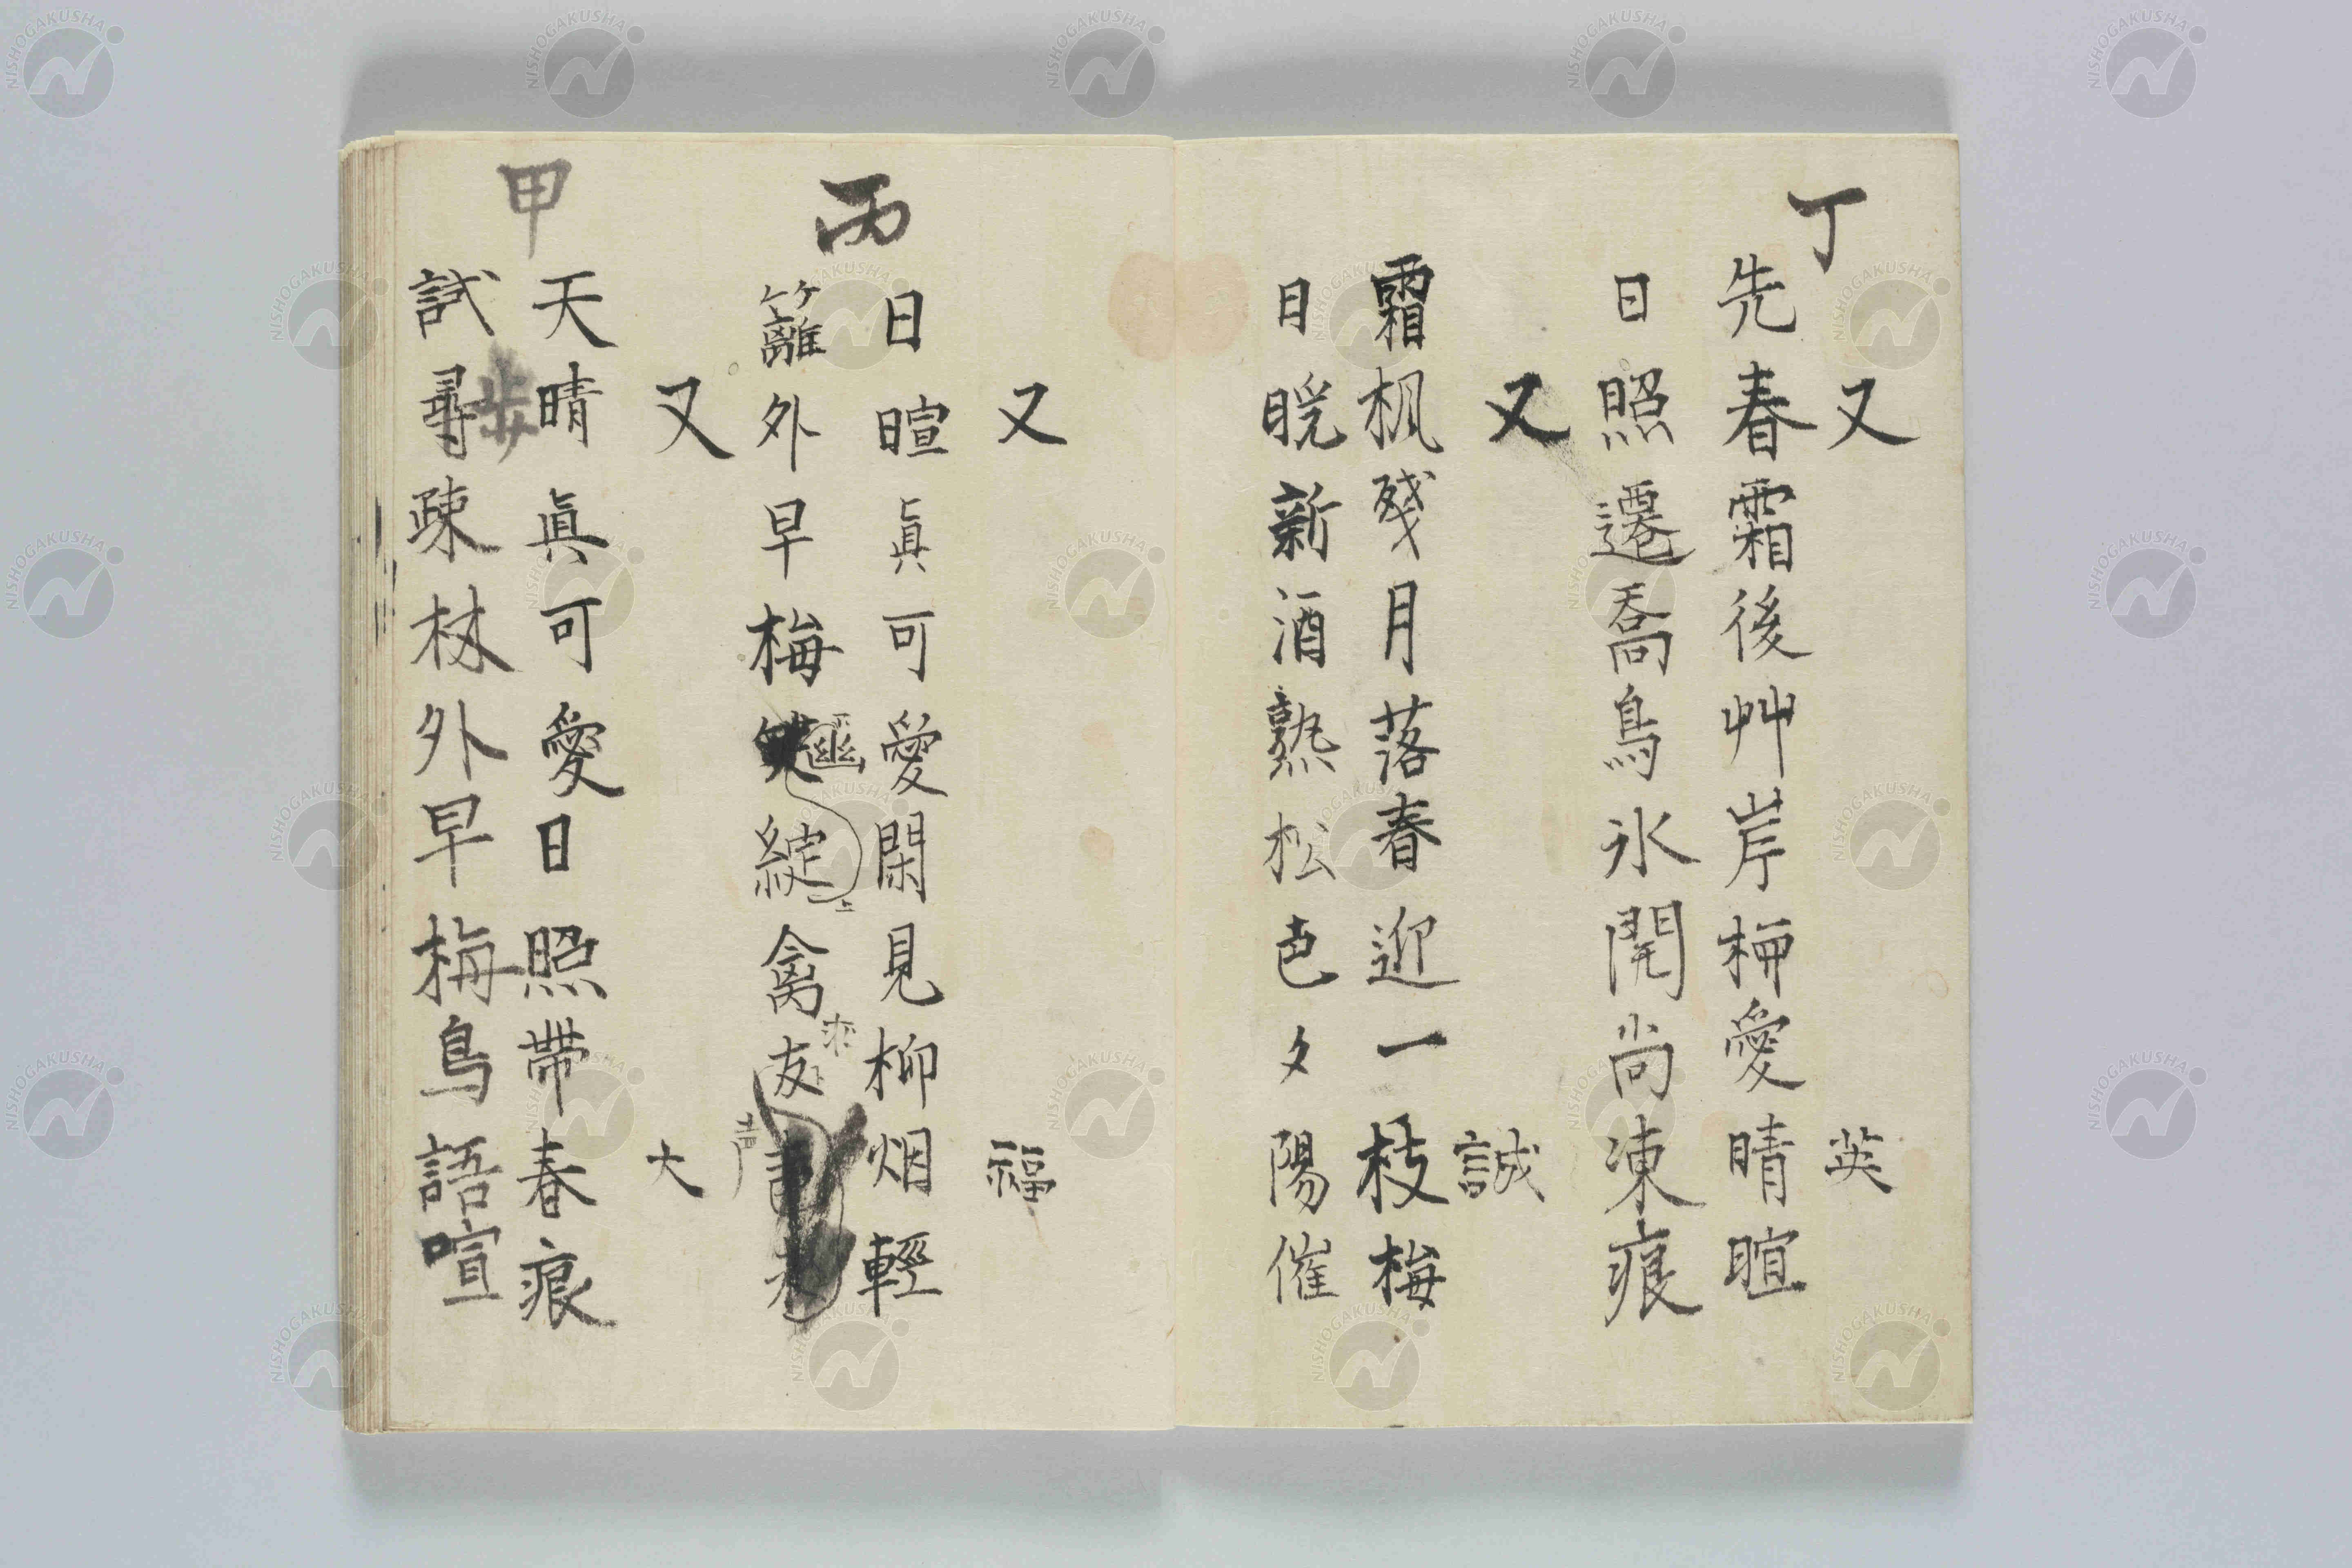 丁
又 英
先春霜後艸岸梅愛晴暄
日照遷喬鳥氷開尚凍痕
又 誠
霜楓殘月落春迎一枝梅
日晩新酒熟松色夕陽催
又 福
丙
日暄眞可愛閑見柳烟輕
籬外早梅綻幽禽友來
又 大
甲
天晴眞可愛日照帶春痕
試尋歩疎林外早梅鳥語喧
NISHOGAKUSHA